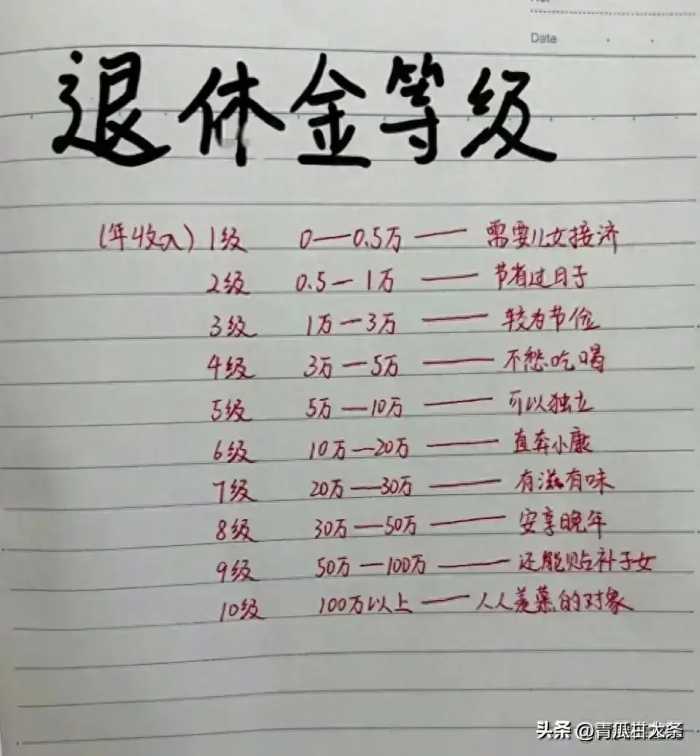 Date
退休金等级
(年收入) 1级 0—0.5万 —— 需要儿女接济
2级 0.5—1万 —— 节省过日子
3级 1万—3万 —— 较为节俭
4级 3万—5万 —— 不愁吃喝
5级 5万—10万 —— 可以独立
6级 10万—20万 —— 直奔小康
7级 20万—30万 —— 有滋有味
8级 30万—50万 —— 安享晚年
9级 50万—100万 —— 还能贴补子女
10级 100万以上 —— 人人羡慕的对象
头条 @青瓜树大条